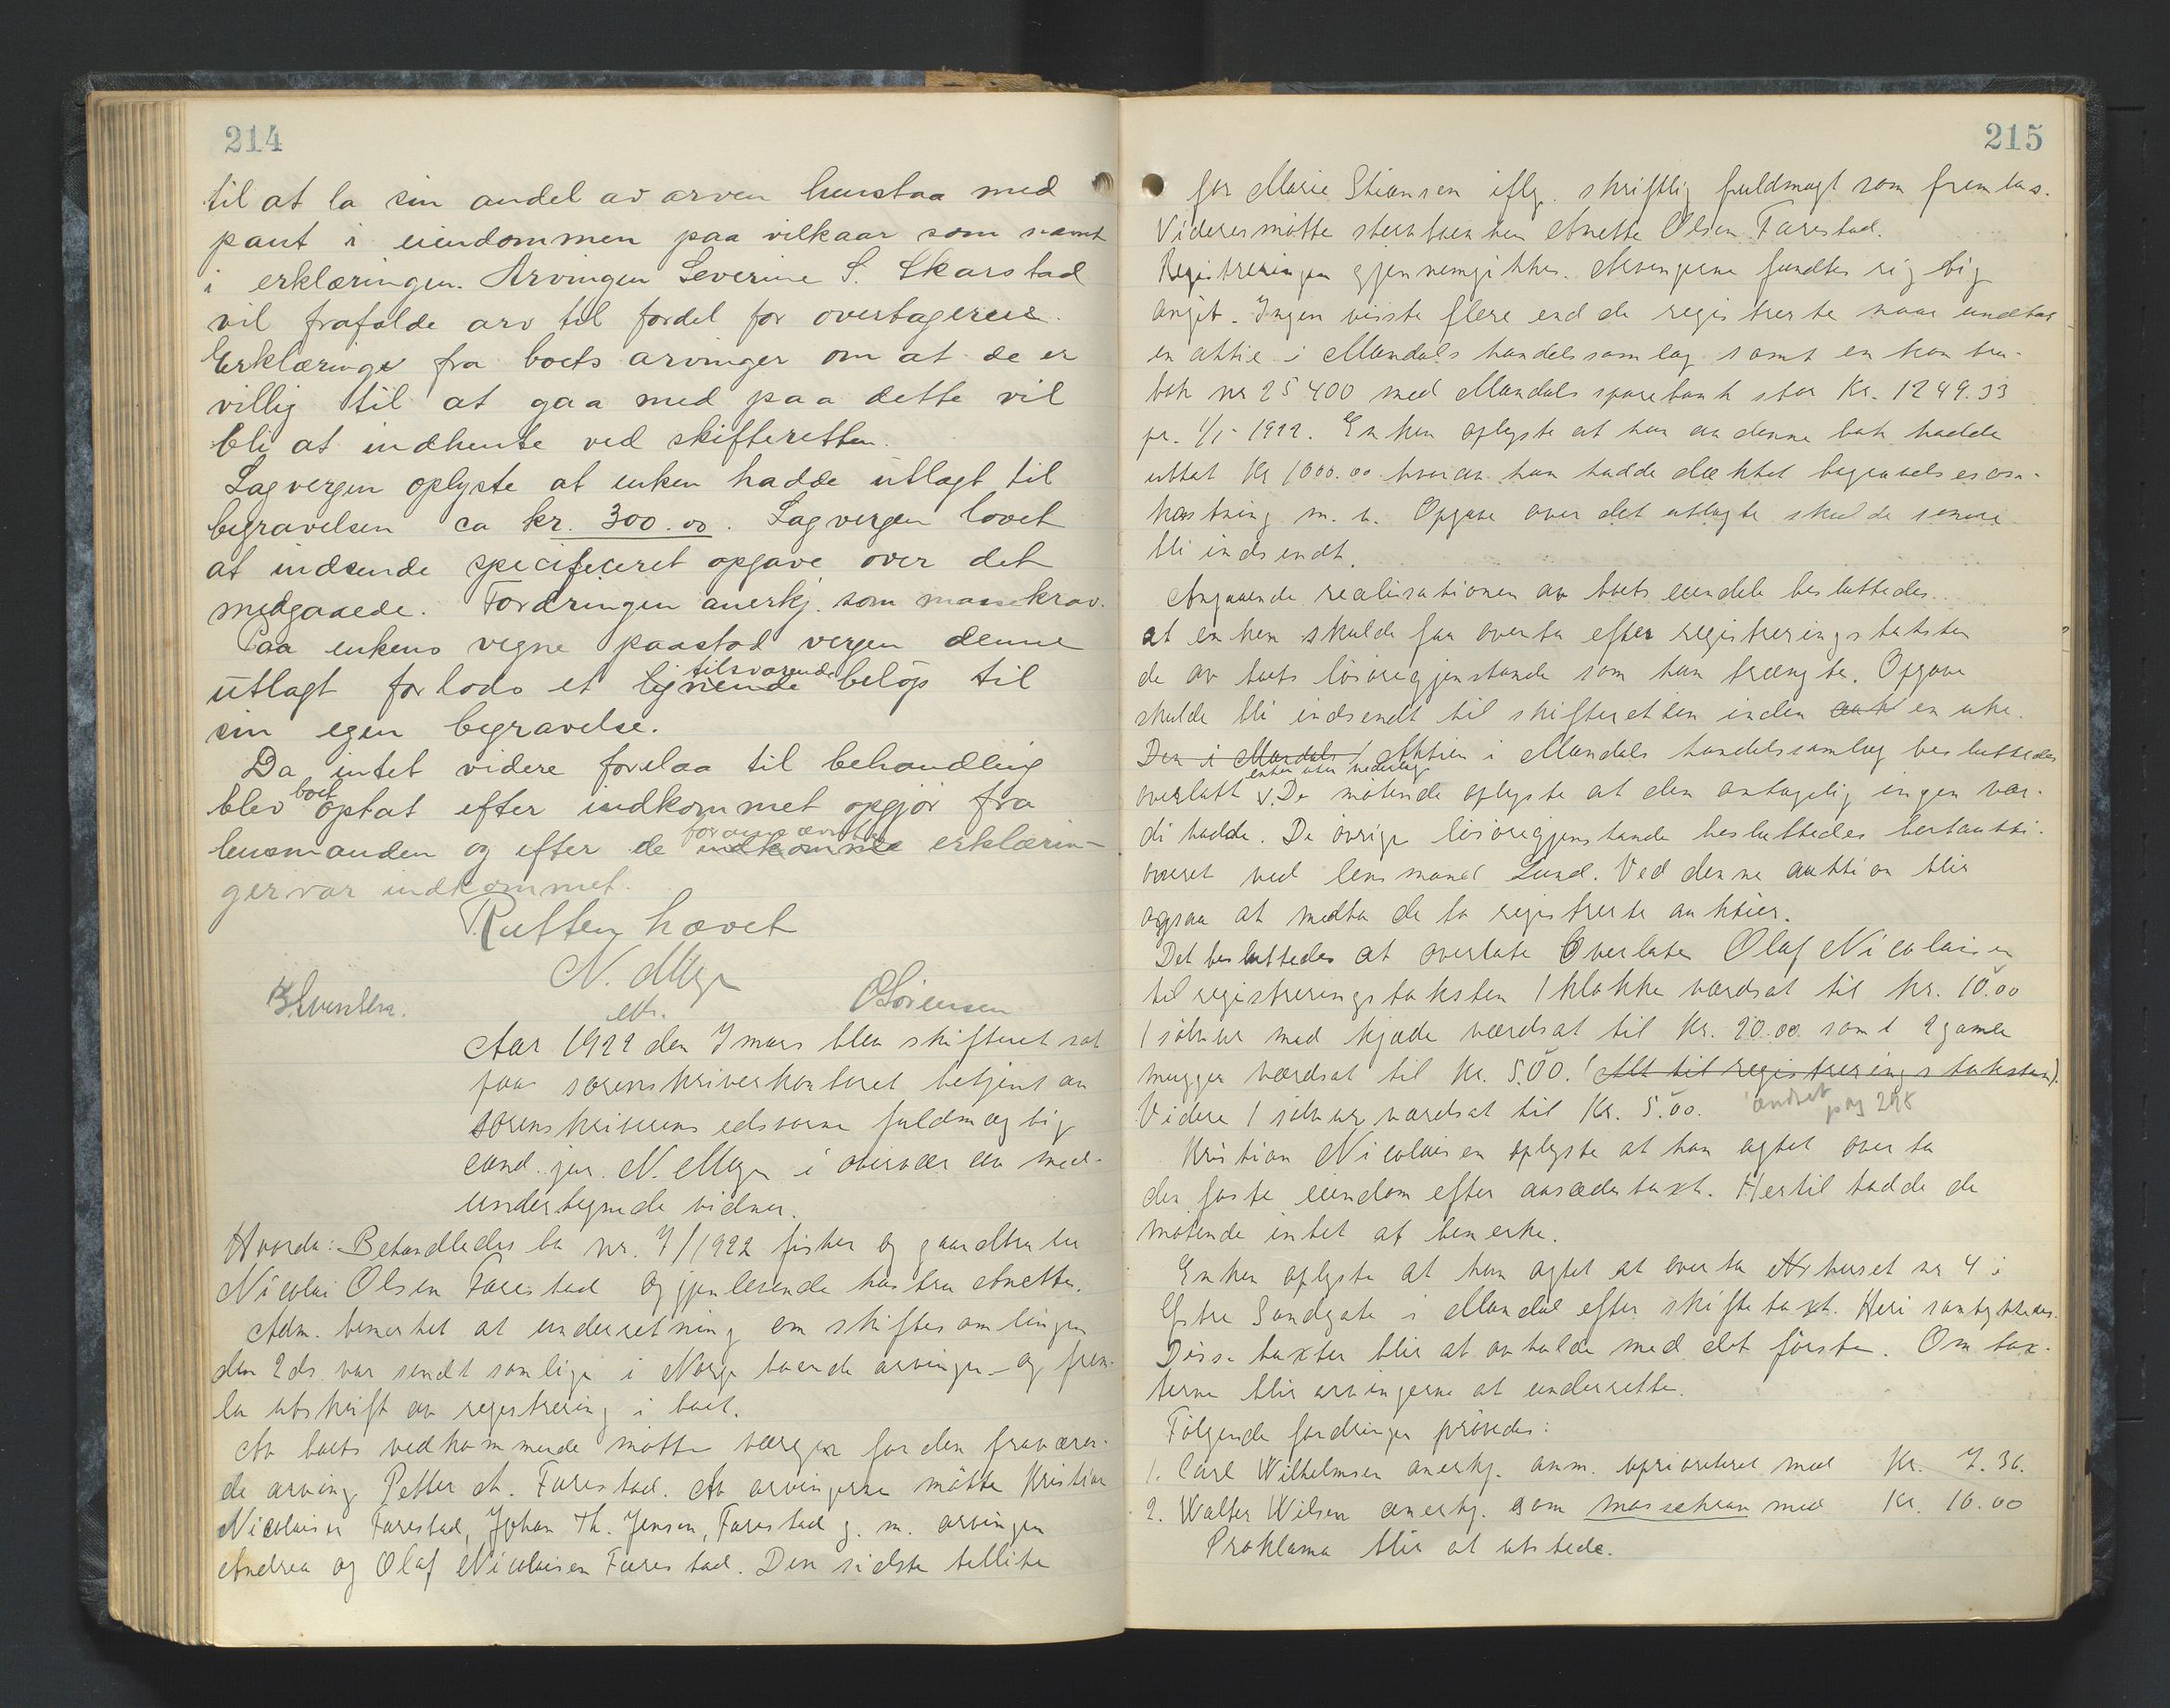 214
til at la sin andel av arven henstaa med
pant i eiendommen paa vilkaar som nævnt
i erklæringen. Arvingen Severine S. Skarstad
vil frafalde arv til fordel for overtagerne.
Erklæringe fra boets arvinger om at de er
villig til at gaa med paa dette vil
bli at indhente ved skifteretten.
Lagvergen oplyste at enken hadde utlagt til
begravelsen ca kr. 300.00. Lagvergen lovet
at indsende specificeret opgave over det
medgaaede. Fordringen anerkj. som massekrav.
Paa enkens vegne paastod vergen denne
utlagt forlods et lignende tilsvarende beløp til
sin egen begravelse.
Da intet videre forelaa til behandling
blev boet optat efter indkommet opgjør fra
lensmanden og efter de indkomne forannævnte erklærin-
ger var indkommet.
Retten hævet
N. Meyer
eth.
OSörensen
Aar 1922 den 7 mars blev skifteret sat
paa sorenskriverkontoret betjent av
sorenskriverens edsvorne fuldmægtig
cand. jur. N. Meyer i overvær av med-
undertegnede vidner.
Hvorda: Behandledes bo nr. 7/1922 fisker og gaardbruker
Nicolai Olsen Farestad og gjenlevende hustru Anette.
Adm. bemerket at underretning om skiftesamlingen
den 2 ds. var sendt samtlige i Norge boende arvinger og frem-
la utskrift av registrering i boet.
Av boets vedkommende møtte værgen for den fraværen-
de arving Petter A. Farestad. Av arvingerne møtte Kristian
Nicolaisen Farestad, Johan Th. Jensen, Farestad g. m. arvingen
Andrea og Olaf Nicolaisen Farestad. Den sidste tillike
215
for Marie Stiansen iflg. skriftlig fuldmagt som fremlas.
Videre møtte stervboenken Anette Olsen Farestad.
Registreringen gjennemgikkes. Arvingerne fandtes rigtig
angit. Ingen visste flere end de registrerte naar undtas
en aktie i Mandals handelssamlag samt en kontra-
bok nr 25400 med Mandals sparebank stor Kr. 1249.33
pr. 1/1 1922. Enken oplyste at hun av denne bok hadde
uttat Kr 1000.00 hvorav hun hadde dækket begravelsesom-
kostning m. v. Opgave over det utlagte skulde senere
bli indsendt.
Angaaende realisationen av boets eiendele besluttedes
at enken skulde faa overta efter registreringstaksten
de av boets løsøregjenstande som hun trængte. Opgave
skulde bli indsendt til skifteretten inden en uke.
Den i Mandals Aktien i Mandals handelssamlag besluttedes
overlatt enken uten vederlag. De møtende oplyste at den antagelig ingen vær-
di hadde. De øvrige løsøregjenstande besluttedes bortauktio-
oneret ved lensmand Lund. Ved denne auktion blir
ogsaa at medta de to registrerte auktier.
Det besluttedes at overlate Overlates Olaf Nicolaisen
til registreringstaksten 1 klokke værdsat til kr. 10.00
1 sølvur med kjæde værdsat til Kr. 20.00 samt 2 gamle
mugger værdsat til Kr. 5.00. (Alt til registreringstaksten).
Videre 1 sølvur værdsat til Kr. 5.00. ændret pag 298
Kristian Nicolaisen oplyste at han agtet overta
den faste eiendom efter aasædestaxt. Hertil hadde de
møtende intet at bemerke.
Enken oplyste at hun agtet at overta huset nr 4 i
Østre Sandgate i Mandal efter skiftetaxt. Heri samtykkedes.
Disse taxter blir at avholde med det første. Om tax-
terne blir arvingerne at underrette.
Følgende fordringer prøvedes:
1. Carl Wilhelmsen anerkj. anm. uprioriteret med Kr. 7.36.
2. Walter Wilsen anerkj. som massekrav med Kr. 16.00
Proklama blir at utstede.